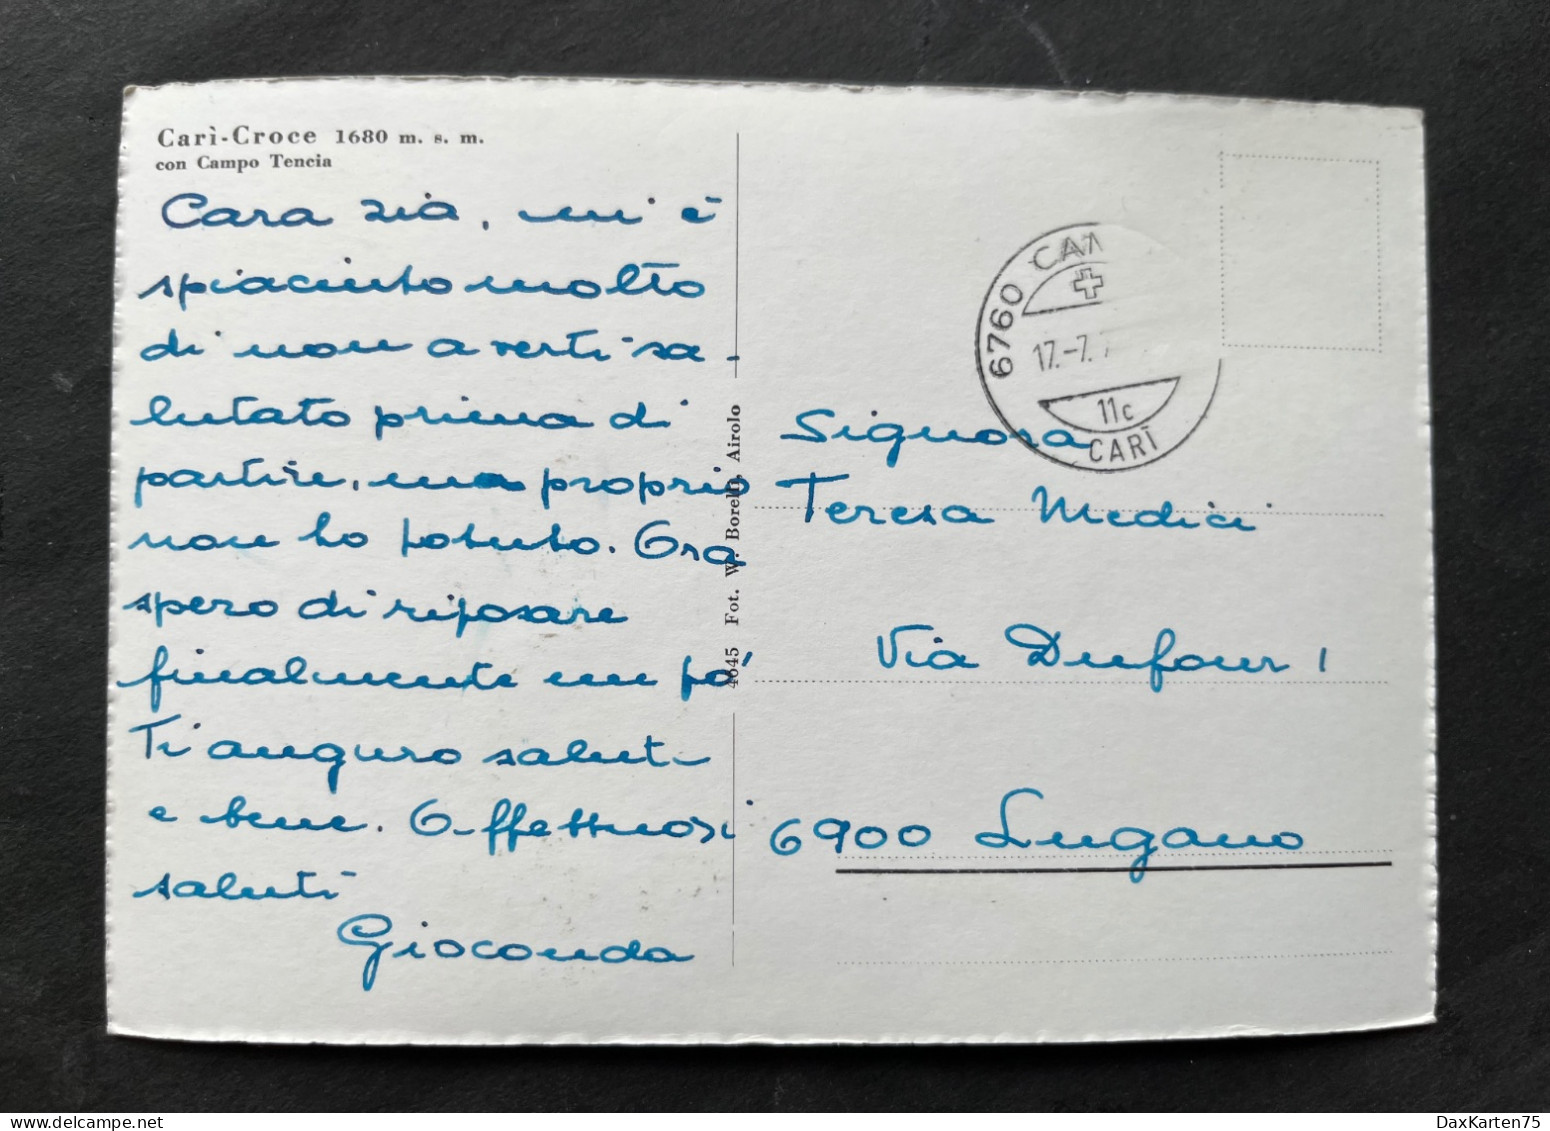 Carì-Croce 1680 m. s. m.
con Campo Tencia
Cara zia, mi è
spiaciuto molto
di non averti sa-
lutato prima di
partire, ma proprio
non ho potuto. Ora
spero di riposare
finalmente un pò
Ti auguro salute
e bene. Affettuosi
saluti
Gioconda
4645 Fot. W. Borelli, Airolo
6760 CA
17.-7.
11c
CARÌ
Signora
Teresa Medici
Via Dufour 1
6900 Lugano
DaxKarten75